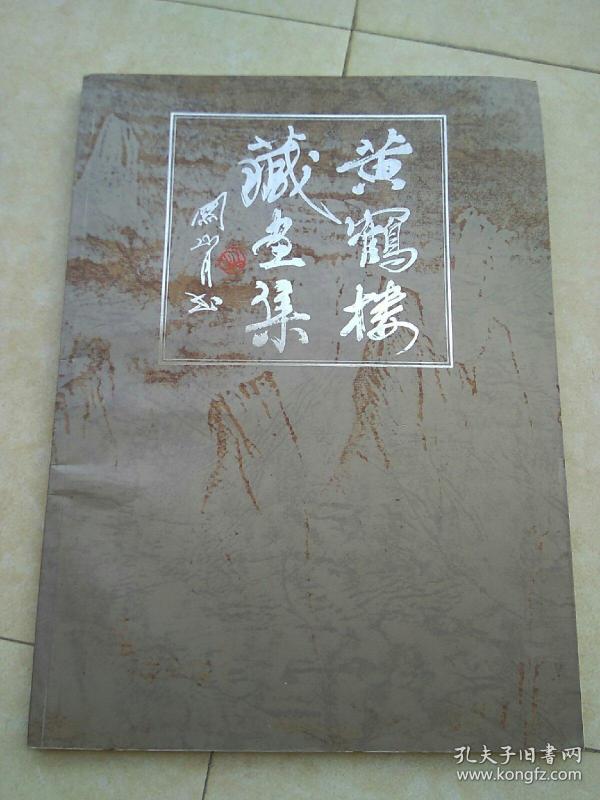 黄鹤楼
藏画集
孔夫子旧書网
www.kongfz.com